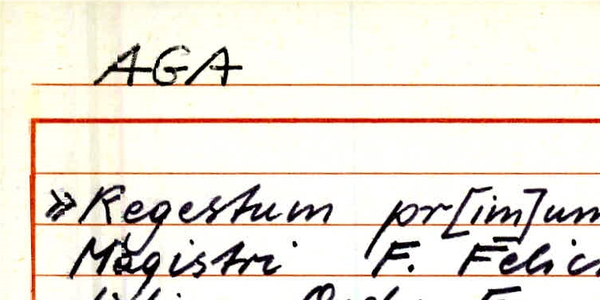 AGA
»Regestum pr[im]um
Magistri F. Felici